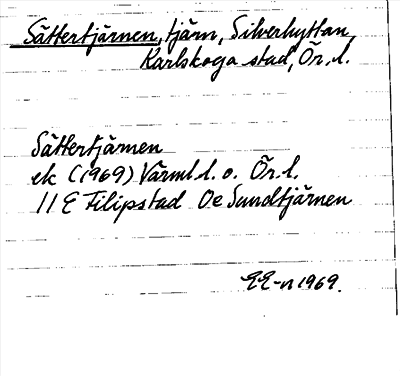 Sättertjärnen, tjärn, Silverhyttan,
Karlskoga stad, Ör. l.
Sättertjärnen
ek (1969) Värml. l. o. Ör. l.
11 E Filipstad 0e Sundtjärnen
EE-n 1969.